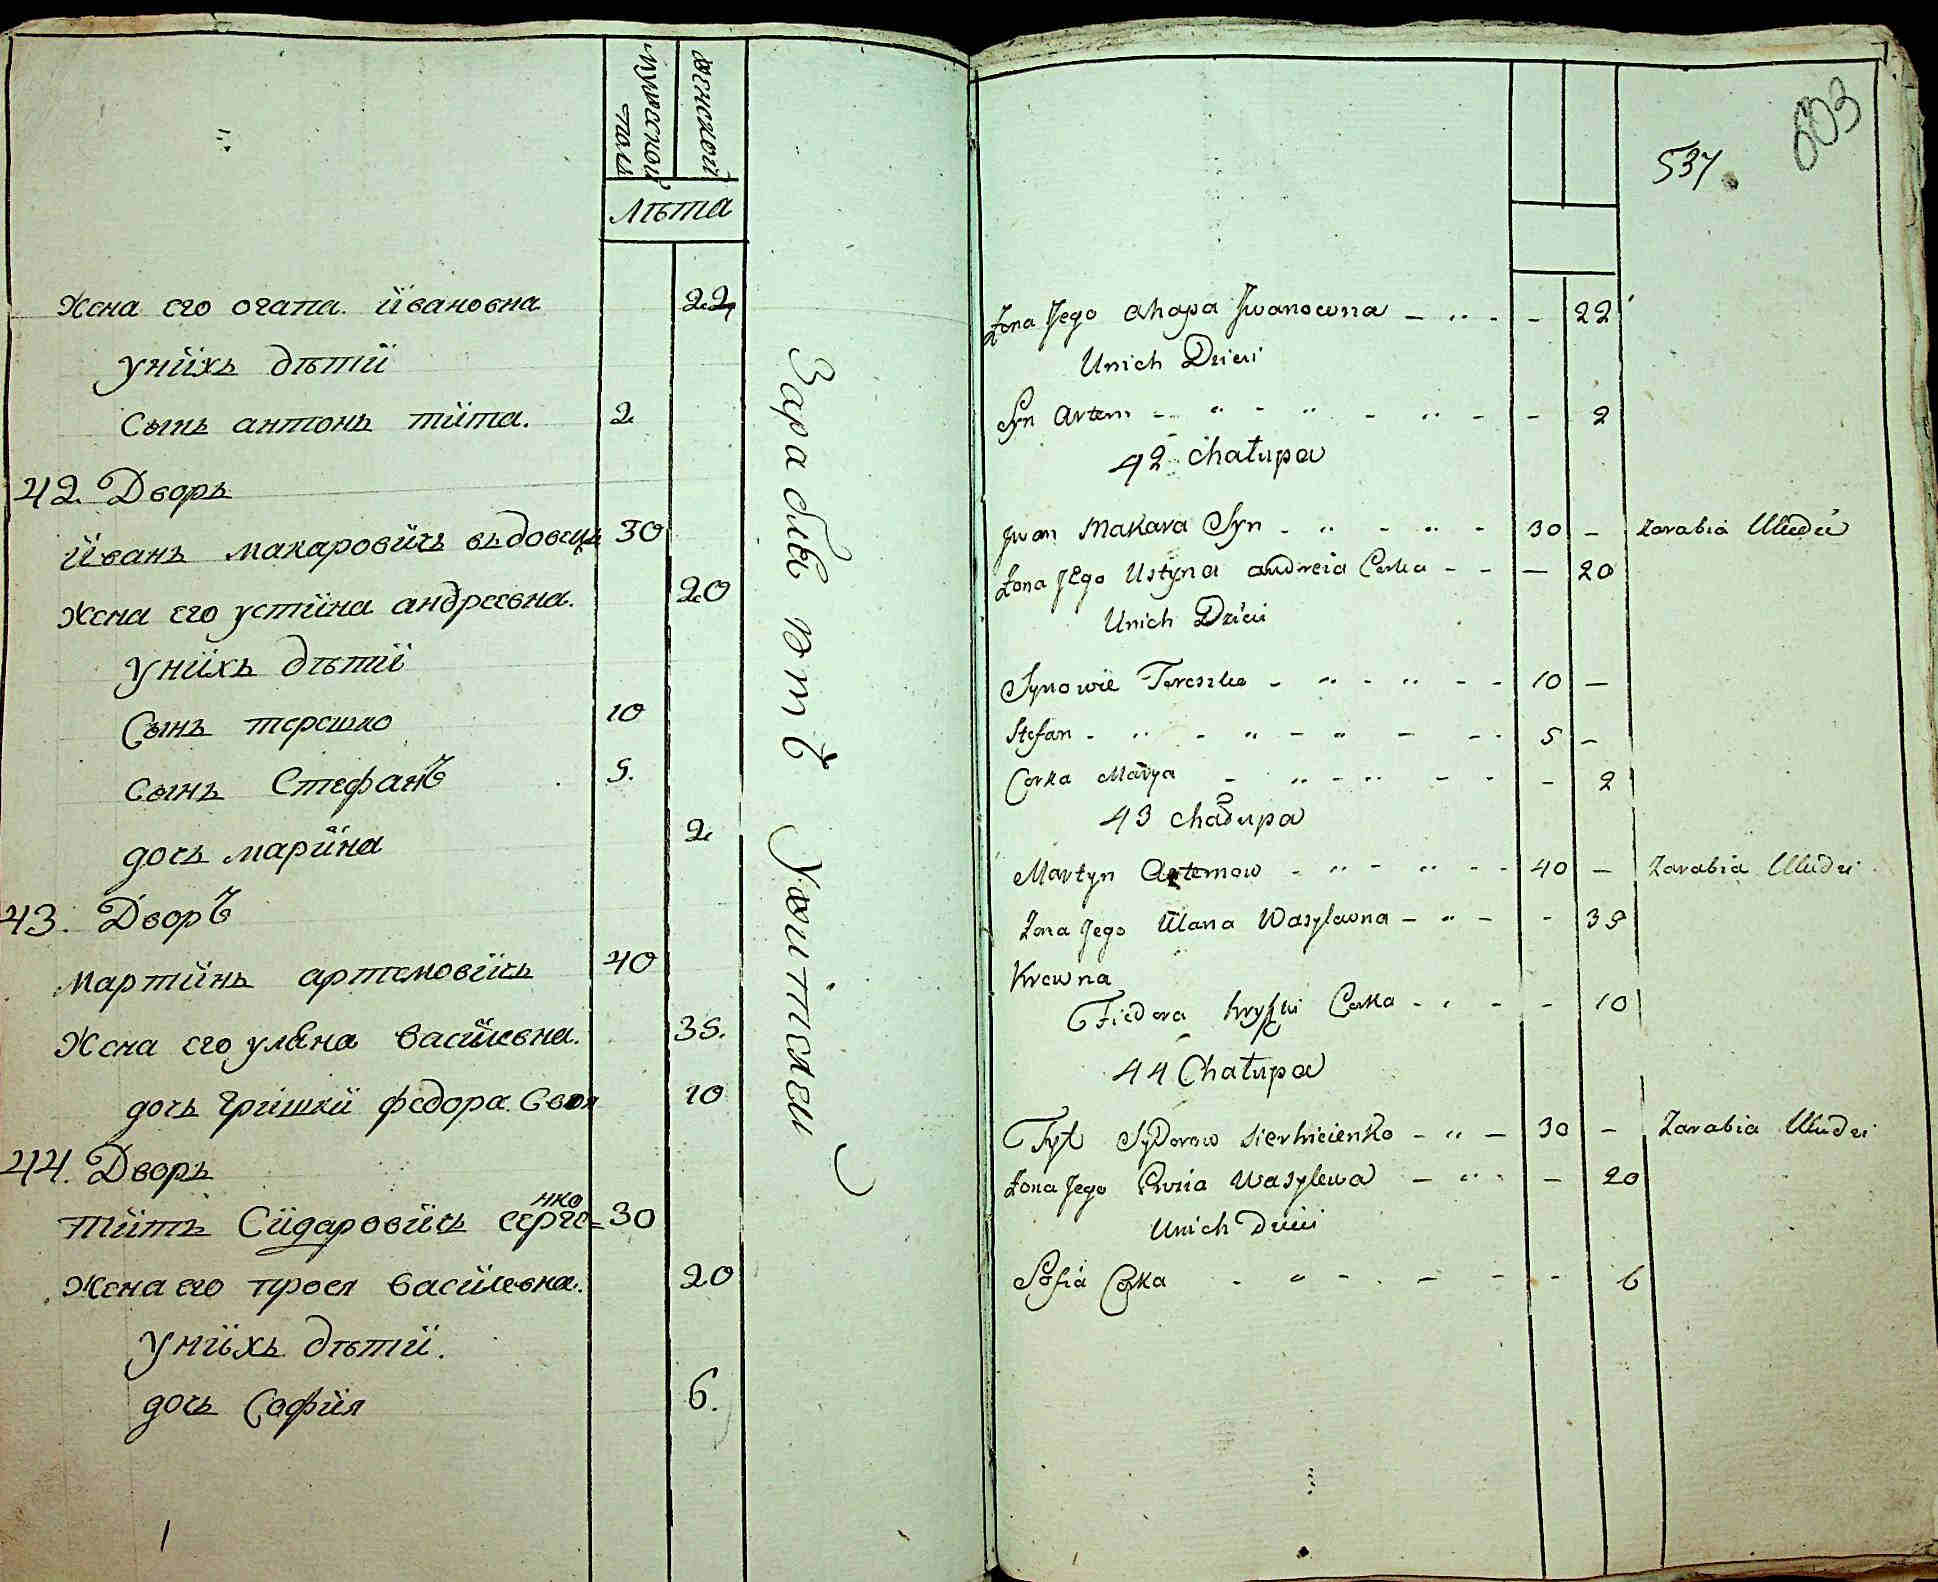 мужеской
полъ
женской
лѣта
Жена его огапа. йвановна 22
унихъ дѣтй
Сынъ антонъ тита. 2
42. Дворъ
Йванъ макаровичъ вьдовецъ 30
Жена его устина андреевна. 20
унихъ дѣтй
Сынъ терешко 10
Сынъ Стефанъ 5.
дочь марина 2
43. Дворъ
мартинъ артемовичъ 40
Жена его уляна василевна. 35.
дочь гришки федора. Своя 10
44. Дворъ
титъ Сидаровичъ сергее=нко 30
Жена его прося василевна. 20
унихъ дѣтй.
дочь София 6.
Зарабляютъ Ужитками
603
537.
Żona Jego ahapa Jwanowna - „ - - 22
Unich Dzieci
Syn Artem - „ - „ - „ - - 2
42 Chałupa
Jwan Makara Syn - „ - „ - 30 - Zarabia Uludzi
Żona JEgo Ustyna andreia Corka - - - 20
Unich Dzieci
Synowie Tereszko - „ - „ - - 10 -
Stefan - „ - „ - „ - - - 5 -
Corka Marya - „ - „ - - - 2
43 chałupa
Martyn Artemow - „ - „ - - 40 - Zarabia Uludzi
Żona Jego Ulana Wasylewna - „ - - 35
Krewna
Fiedora hryszki Corka - „ - - 10
44 Chałupa
Tyt Sydorow Sierhieienko - „ - 30 - Zarabia Uludzi
Żona Jego Prosia Wasylewa - „ - - 20
Unich Dzieci
Sofia Corka - „ - - - - 6